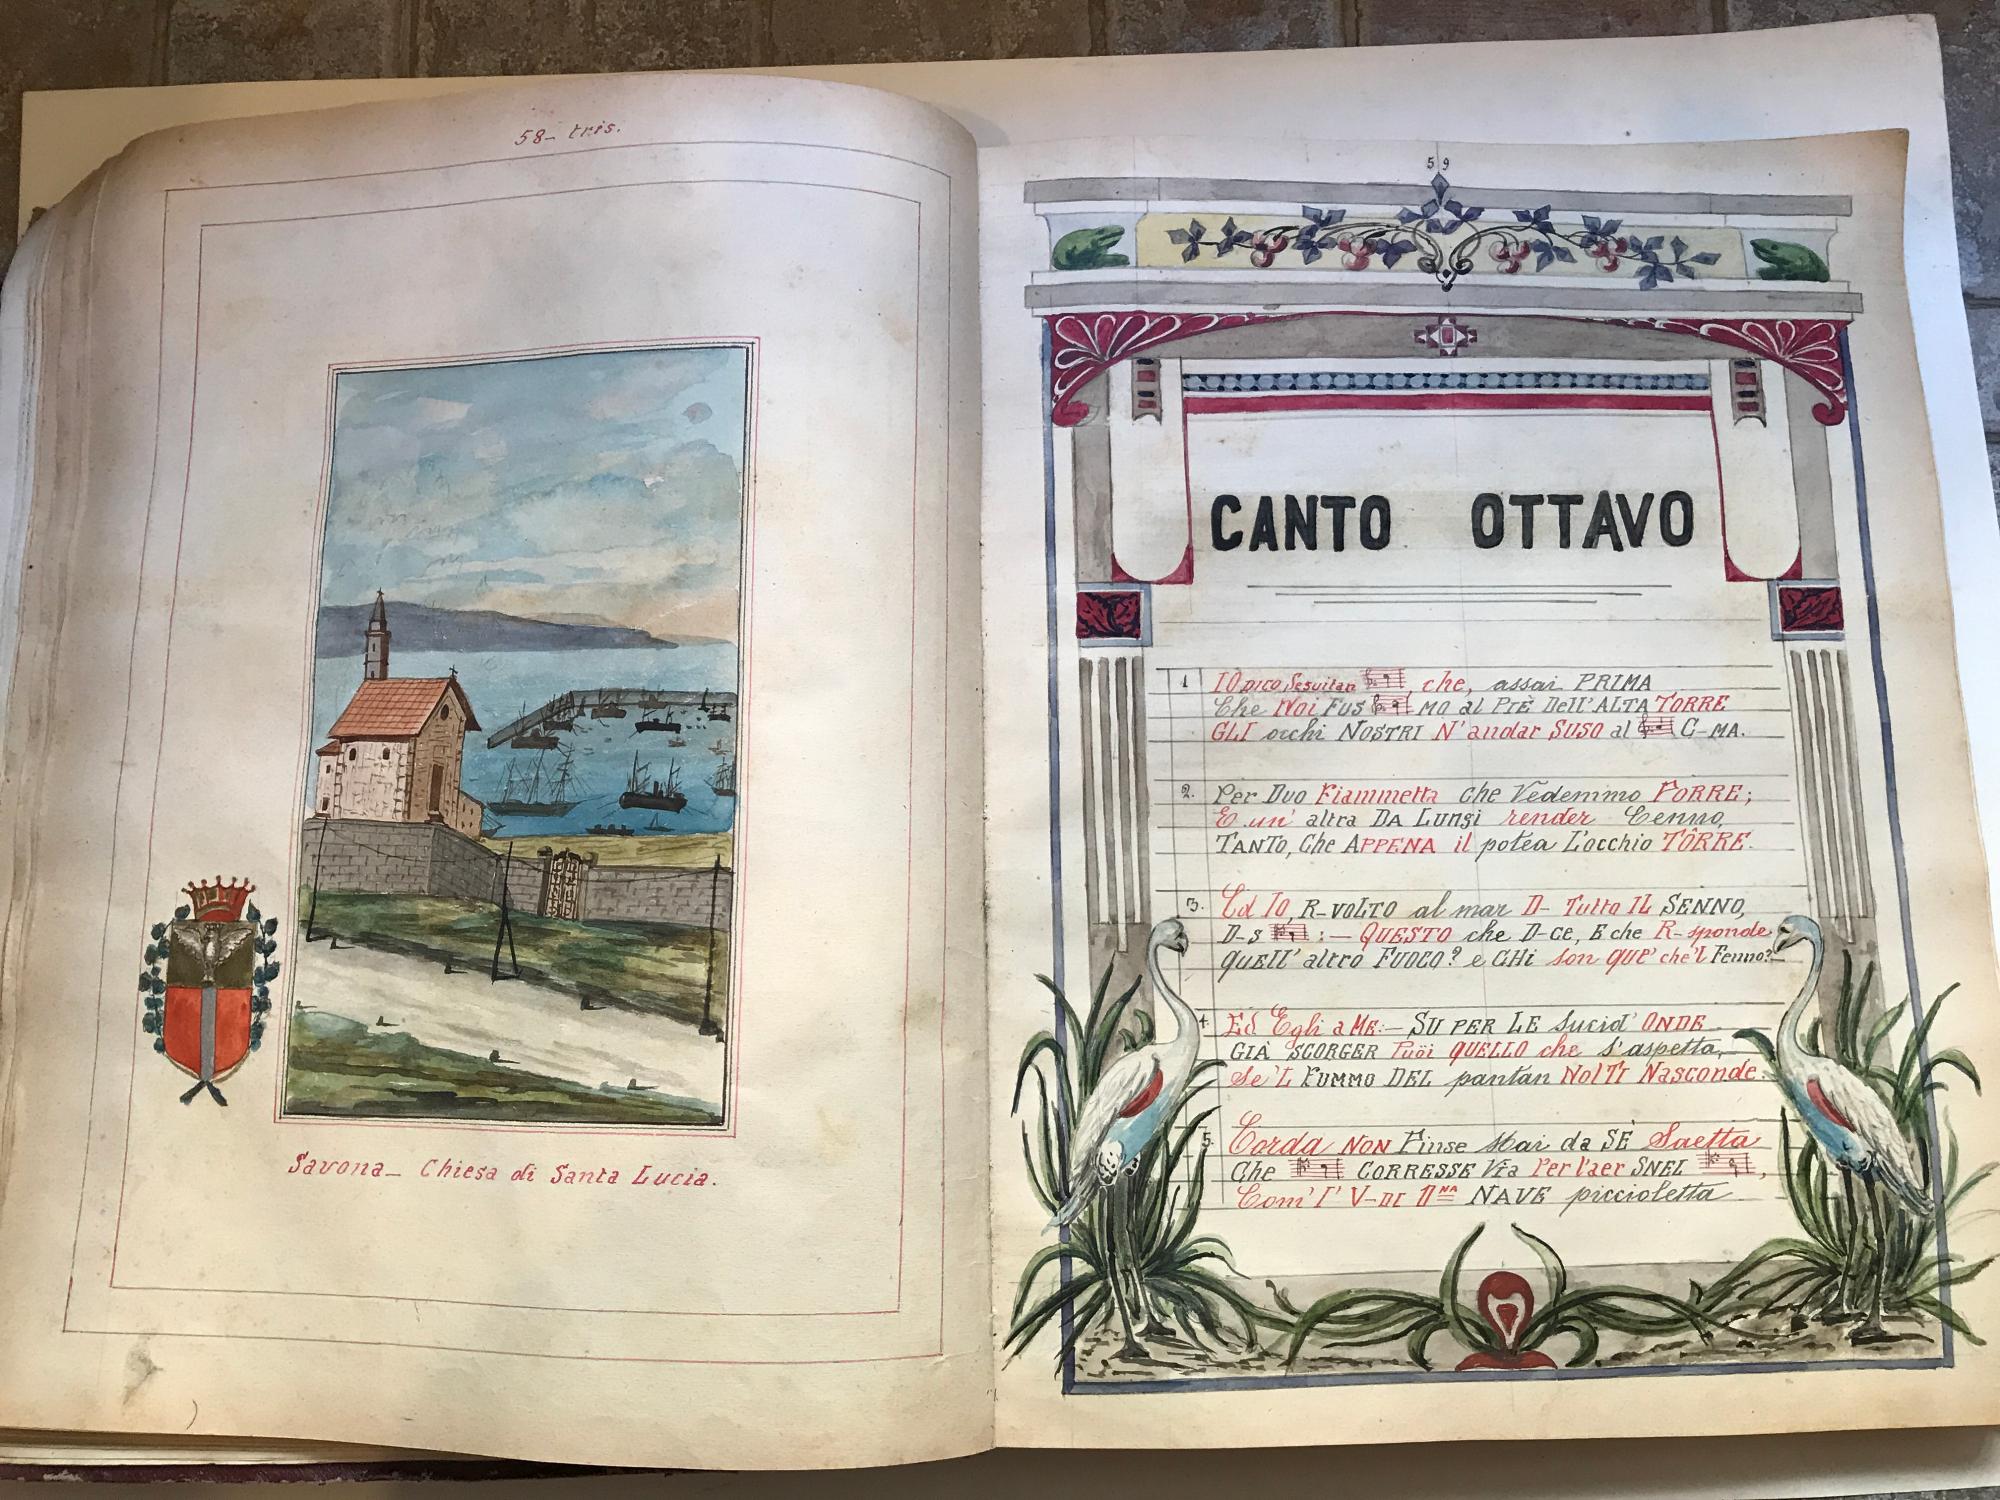 58- tris.
Savona- Chiesa di Santa Lucia.
59
CANTO OTTAVO
1 IO DICO, Seguitan , che, assai PRIMA
Che Noi FUS MO al PIÈ Dell' ALTA TORRE
GLI occhi NOSTRI N'andar SUSO al C-MA.
2. Per Duo Fiammetta che Vedemmo PORRE;
E un' altra DA Lungi render Cenno,
TANTO, Che APPENA il potea L'occhio TÔRRE.
3. Ed IO, R-VOLTO al mar D- Tutto IL SENNO,
D-S :- QUESTO che D-CE, E che R-sponde
QUELL' altro FUOCO? e CHI son QUE' che'L Fenno?
4. Ed Egli a ME:- SU PER LE sucid' ONDE
GIÀ SCORGER Puöi QUELLO che s'aspetta,
Se 'L FUMMO DEL pantan NOLTI NASconde.
5. Corda NON Pinse Mai da SÈ Saetta
Che CORRESSE Via Per l'aer SNEL ,
Com' I' V-DI Uᴺᴬ NAVE piccioletta